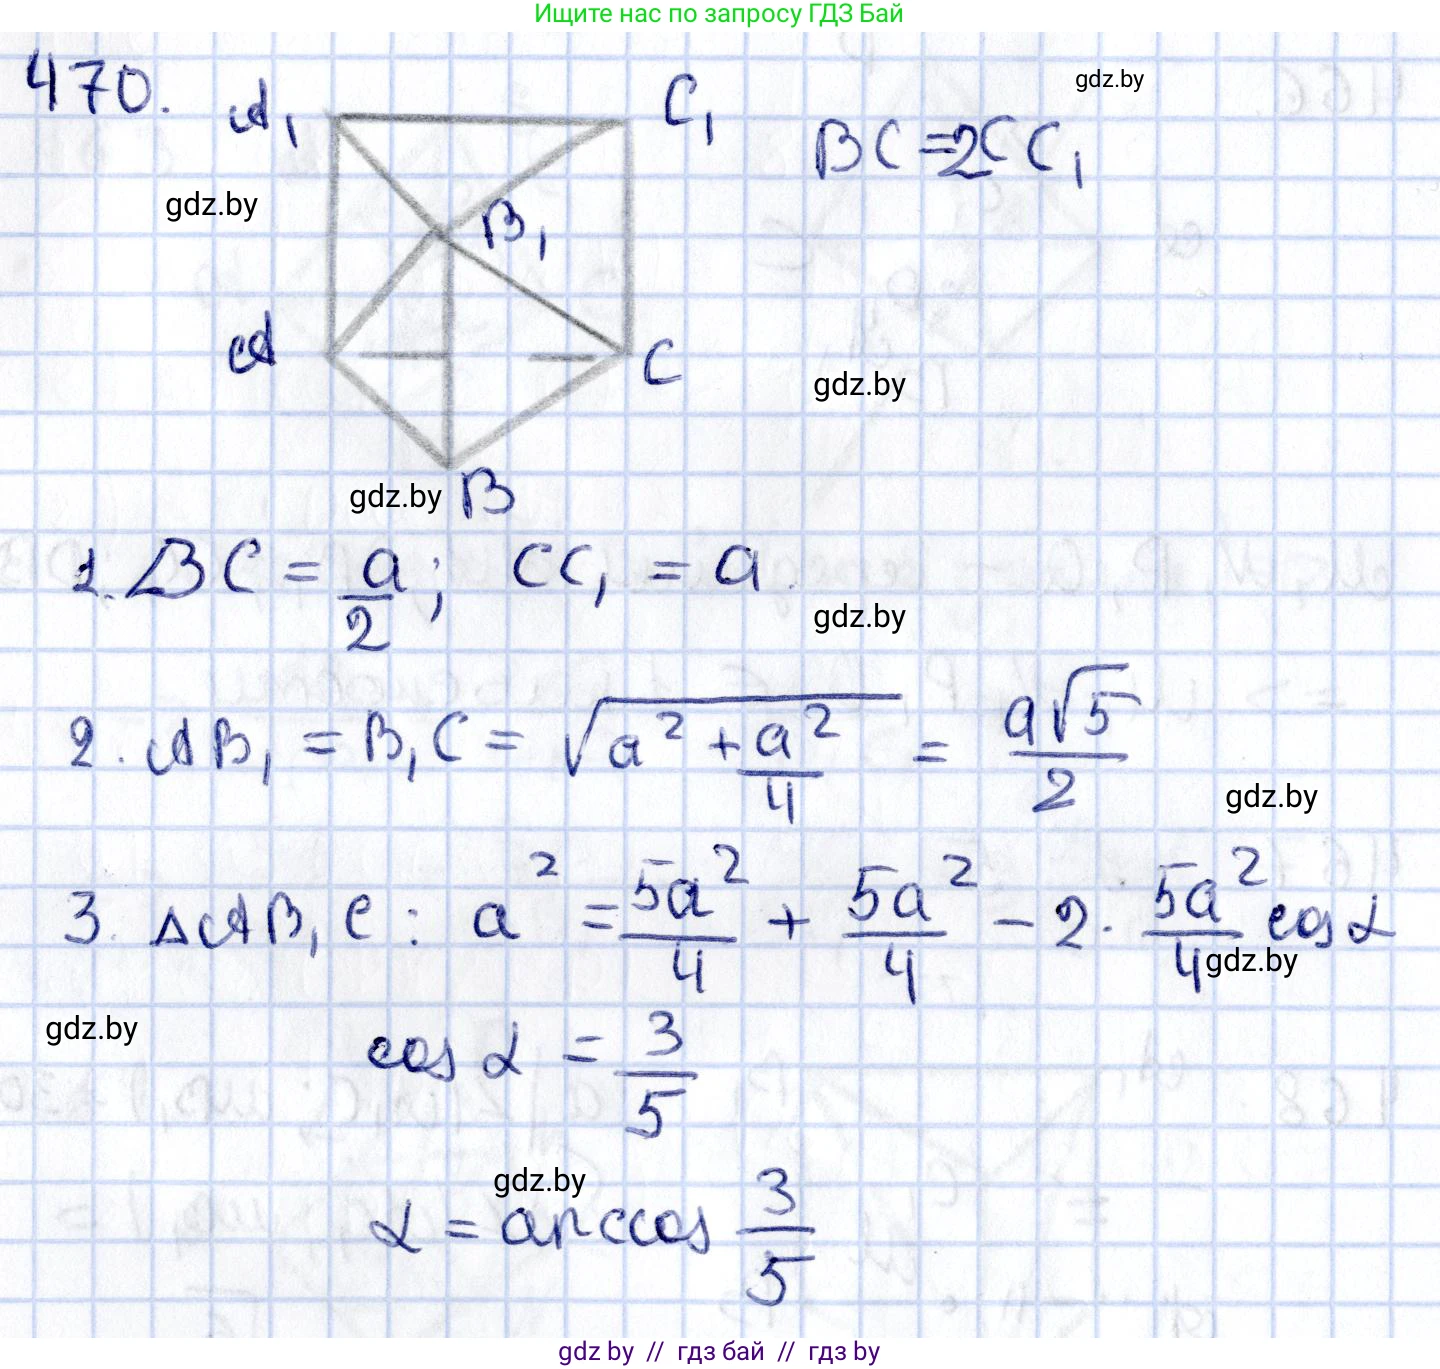 Ищите нас по запросу ГДЗ Бай
470.
A₁
C₁
gdz.by
BC = 2CC₁
gdz.by
B₁
A
C
gdz.by
gdz.by
B
1. BC = a/2; CC₁ = a.
gdz.by
2. AB₁ = B₁C = √(a² + a²/4) = a√5/2
gdz.by
3. △AB₁C: a² = 5a²/4 + 5a²/4 − 2 · 5a²/4 cos α
gdz.by
gdz.by
cos α = 3/5
gdz.by
α = arccos 3/5
gdz.by // гдз бай // гдз by